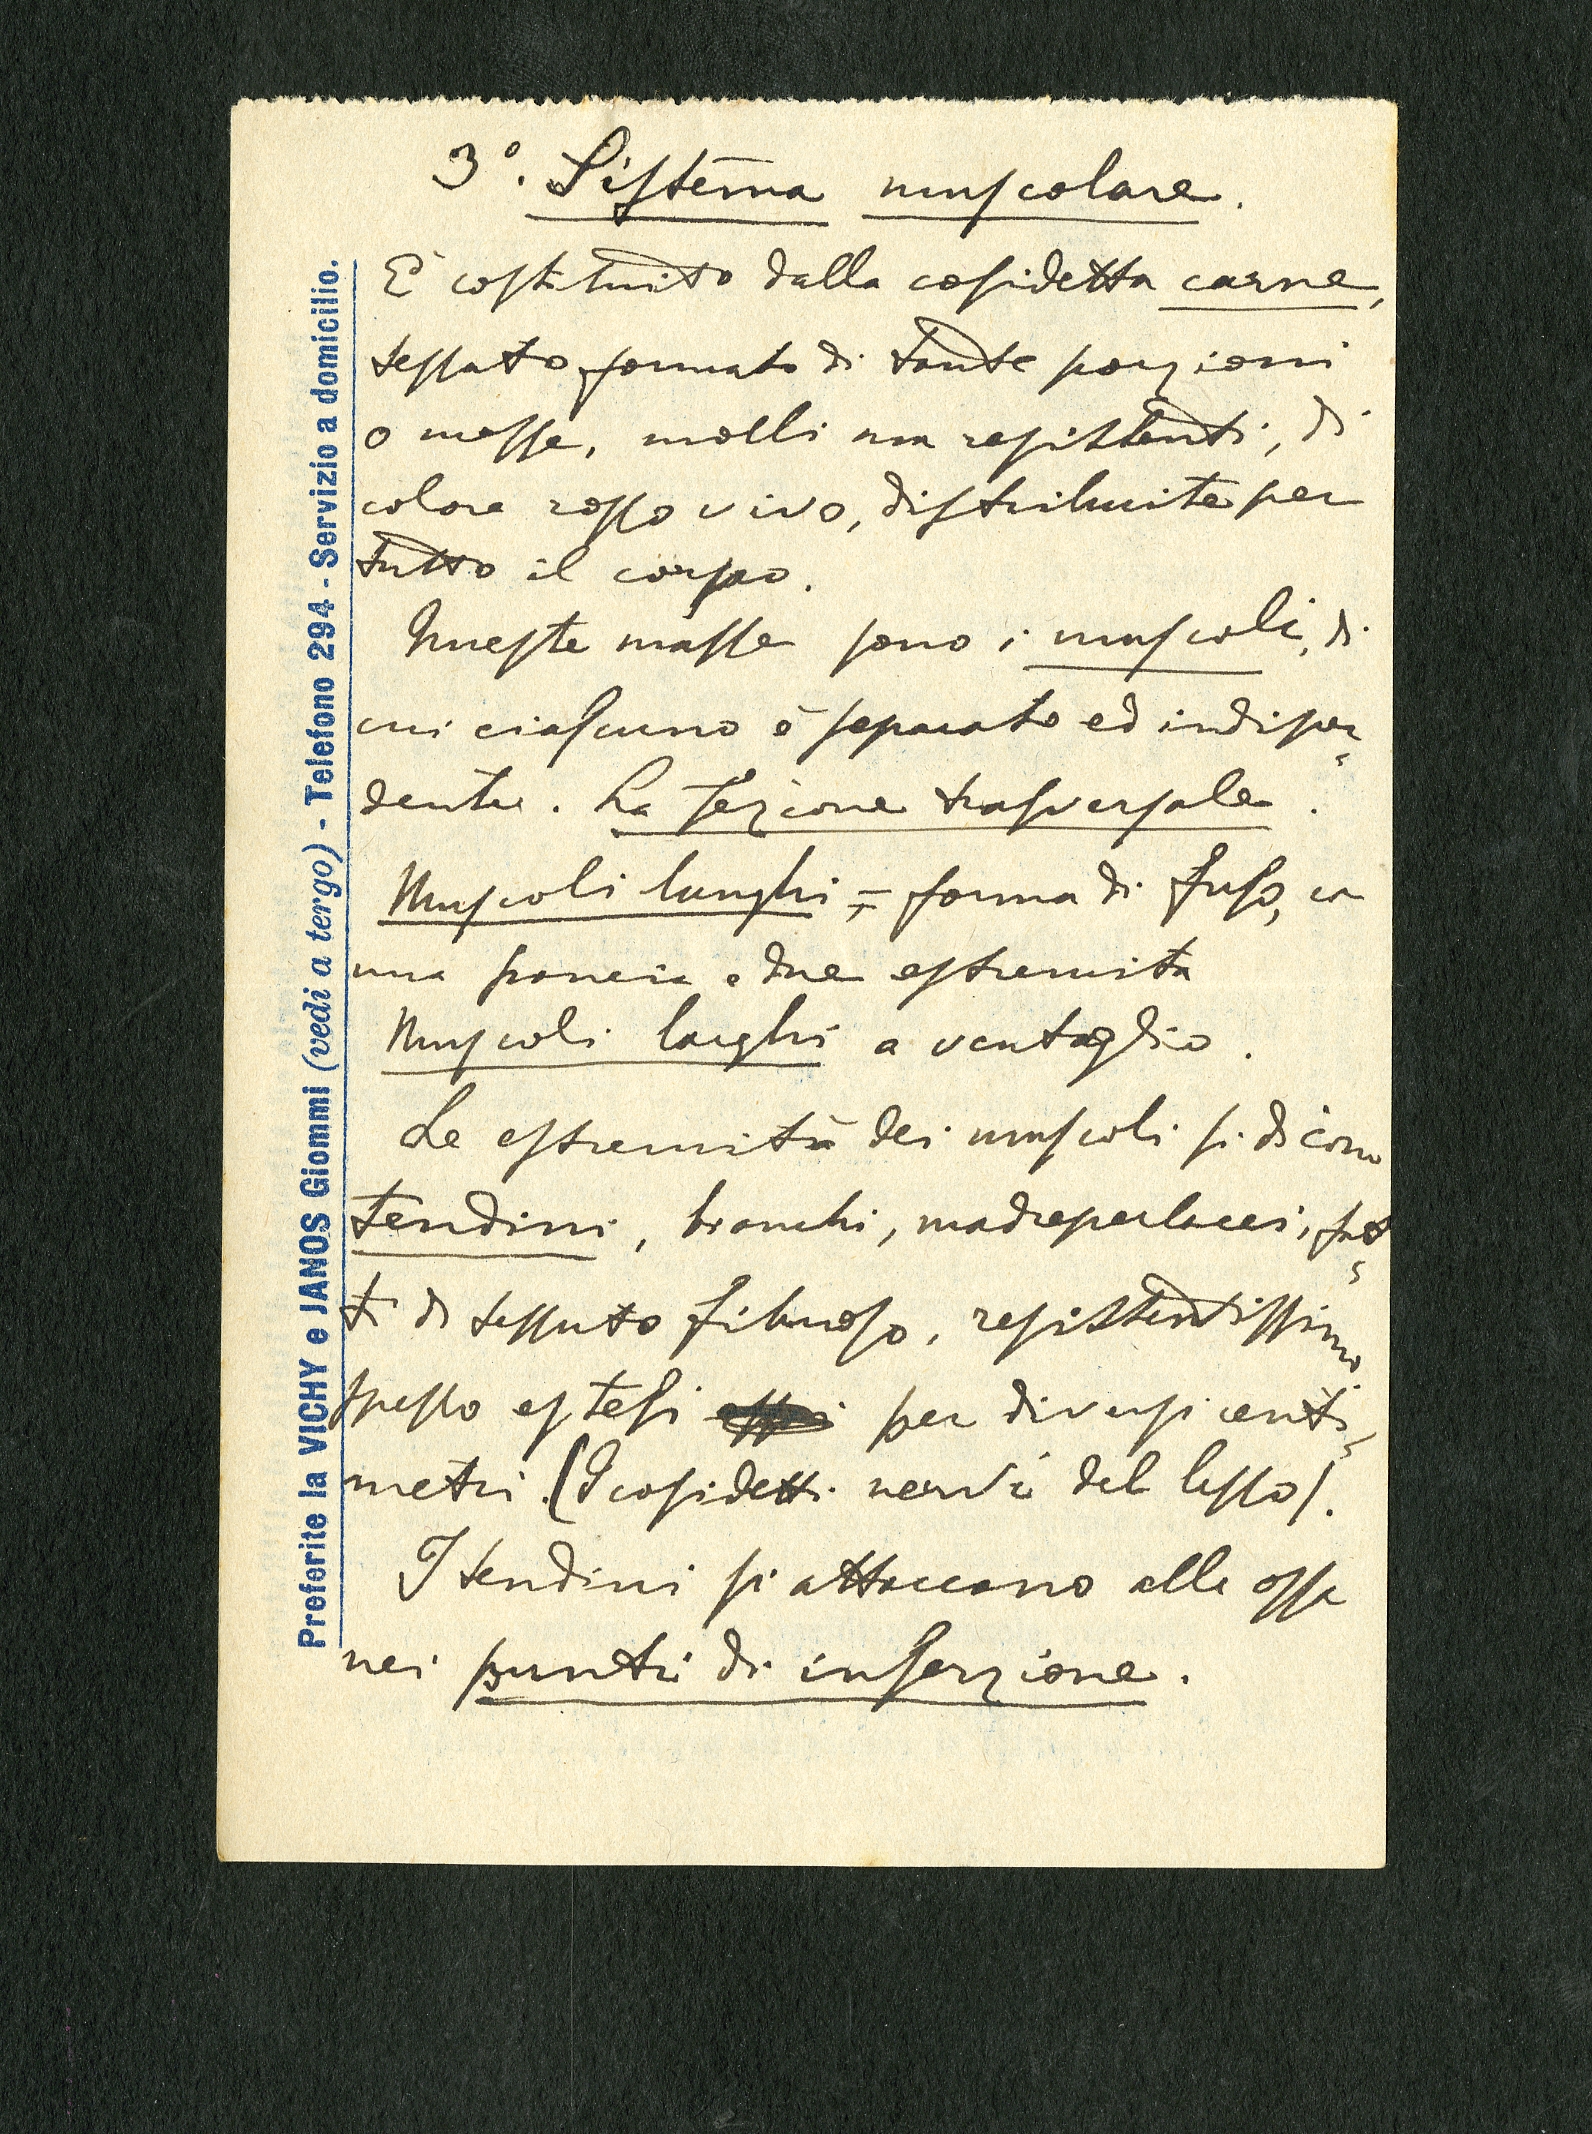 3°. Sistema muscolare.
È costituito dalla cosidetta carne,
tessuto formato di tante porzioni
o masse, molli ma resistenti, di
colore rosso vivo, distribuite per
tutto il corpo.
Queste masse sono i muscoli, di
cui ciascuno è separato ed indipen=
dente. La sezione trasversale.
Muscoli lunghi = forma di fuso, con
una pancia e due estremità
Muscoli larghi a ventaglio.
Le estremità dei muscoli si dicono
tendini, bianchi, madreperlacei, fat=
ti di tessuto fibroso, resistentissimo
spesso estesi per diversi centi=
metri. (I cosidetti nervi del lesso).
I tendini si attaccano alle ossa
nei punti di inserzione.
Preferite la VICHY e JANOS Giommi (vedi a tergo) - Telefono 294 - Servizio a domicilio.